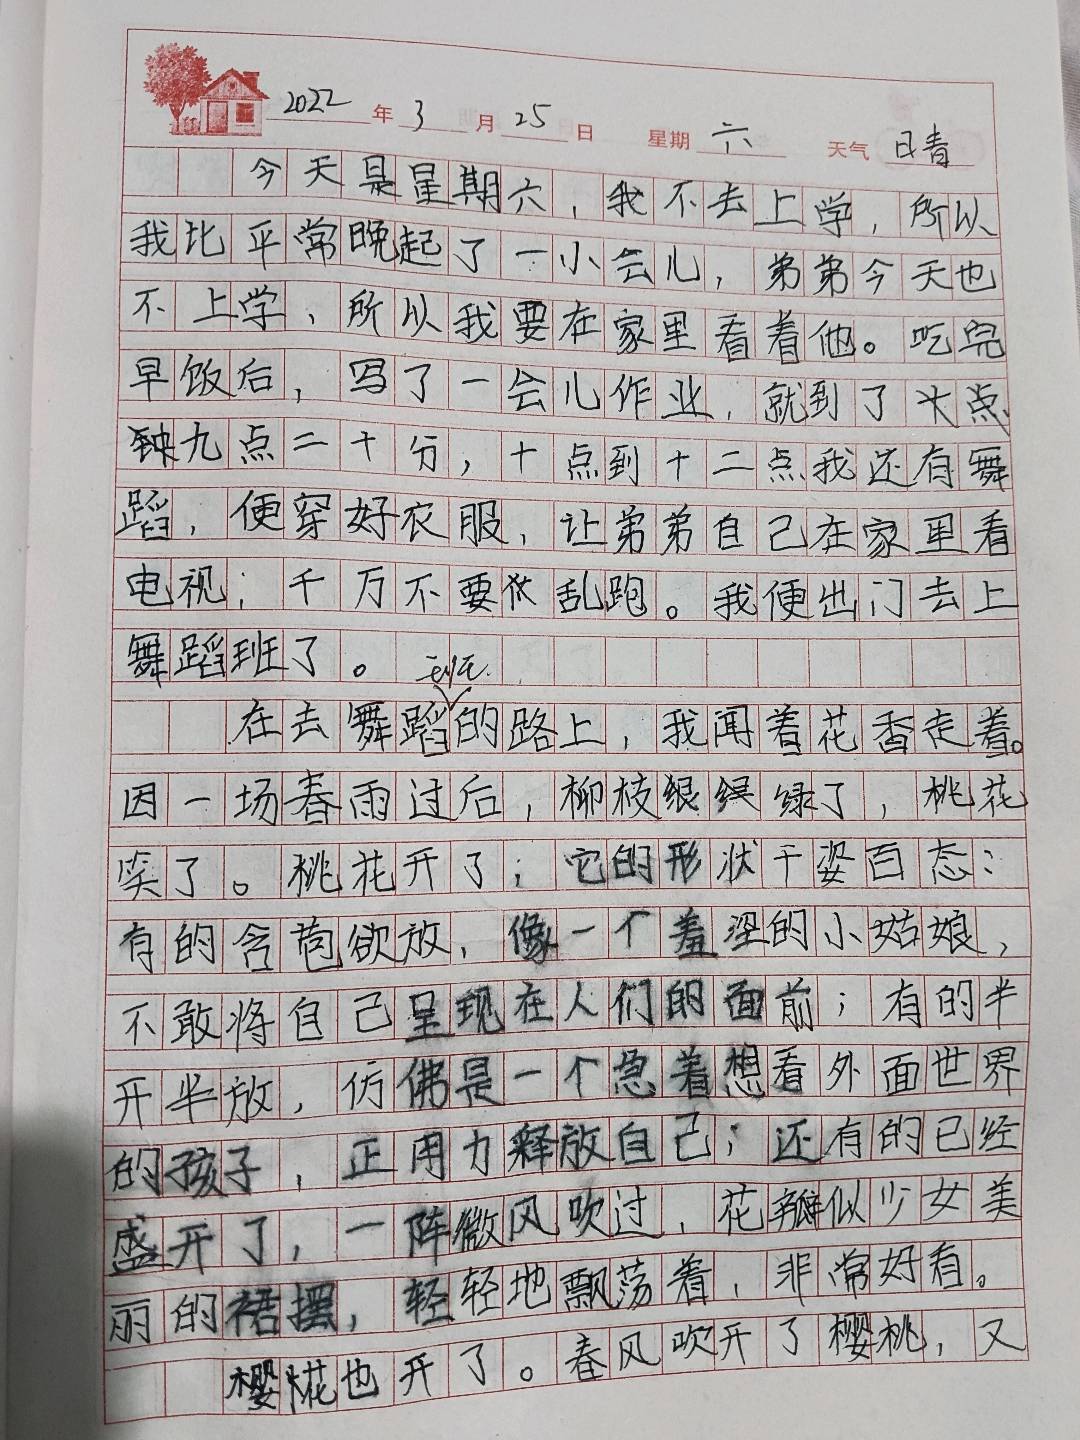 2022年3月25日 星期六 天气 晴
今天是星期六，我不去上学，所以
我比平常晚起了一小会儿，弟弟今天也
不上学、所以我要在家里看着他。吃完
早饭后，写了一会儿作业，就到了点
钟九点二十分，十点到十二点我还有舞
蹈，便穿好衣服，让弟弟自己在家里看
电视；千万不要乱跑。我便出门去上
舞蹈班了。
在去舞蹈班的路上，我闻着花香走着。
因一场春雨过后，柳枝绿了，桃花
笑了。桃花开了；它的形状千姿百态：
有的含苞欲放，像一个羞涩的小姑娘，
不敢将自己呈现在人们的面前；有的半
开半放，仿佛是一个急着想看外面世界
的孩子，正用力释放自己；还有的已经
盛开了，一阵微风吹过，花瓣似少女美
丽的裙摆，轻轻地飘荡着，非常好看。
樱花也开了。春风吹开了樱桃，又